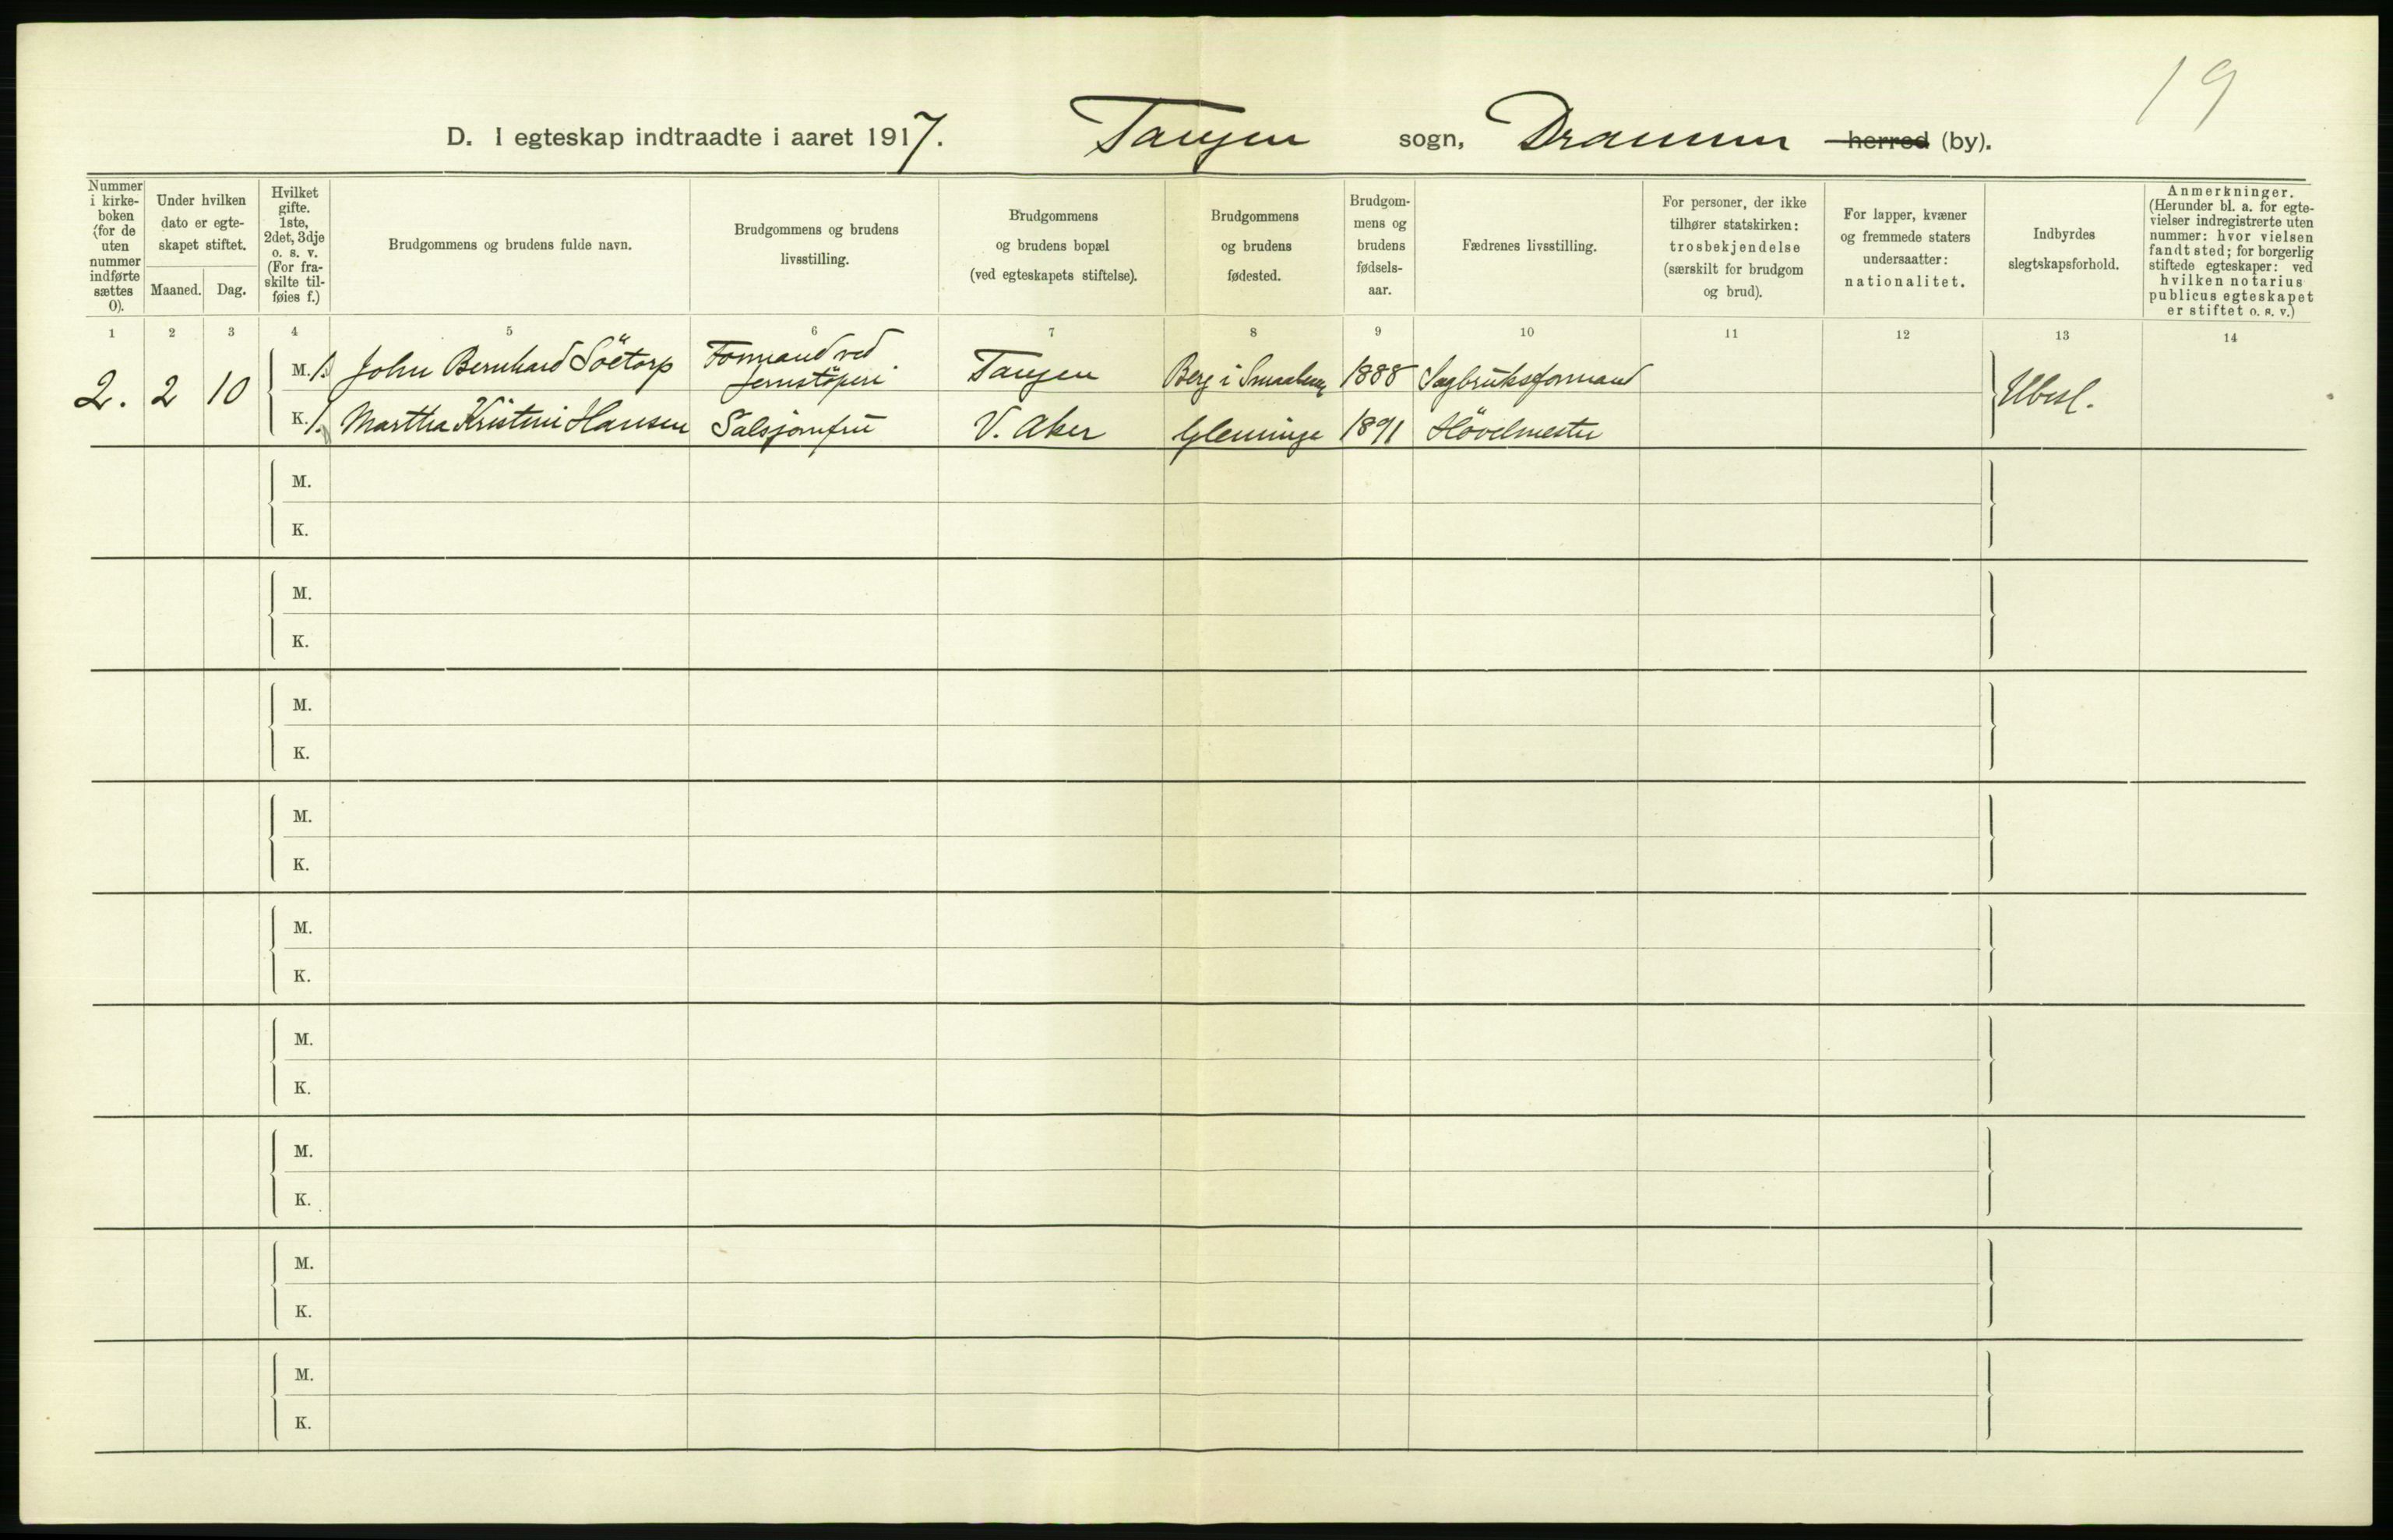 19
D. I egteskap indtraadte i aaret 1917. Tangen sogn, Drammen herred (by).
Nummer i kirke-boken (for de uten nummer indførte sættes 0).
Under hvilken dato er egte-skapet stiftet.
Maaned. Dag.
Hvilket gifte. 1ste, 2det, 3dje o. s. v. (For fra-skilte til-føies f.)
Brudgommens og brudens fulde navn.
Brudgommens og brudens livsstilling.
Brudgommens og brudens bopæl (ved egteskapets stiftelse).
Brudgommens og brudens fødested.
Brudgom-mens og brudens fødsels-aar.
Fædrenes livsstilling.
For personer, der ikke tilhører statskirken: trosbekjendelse (særskilt for brudgom og brud).
For lapper, kvæner og fremmede staters undersaatter: nationalitet.
Indbyrdes slegtskapsforhold.
Anmerkninger. (Herunder bl. a. for egte-vielser indregistrerte uten nummer: hvor vielsen fandt sted; for borgerlig stiftede egteskaper: ved hvilken notarius publicus egteskapet er stiftet o. s. v.)
1 2 3 4 5 6 7 8 9 10 11 12 13 14
2. 2 10 M. 1. John Bernhard Söetorp Formand ved Jernstöperi Tangen Berg i Smaalenene 1888 Sagbruksformand Ubesl.
K. 1. Martha Kristine Hansen Salsjomfru V. Aker Glemminge 1891 Hövelmester
M.
K.
M.
K.
M.
K.
M.
K.
M.
K.
M.
K.
M.
K.
M.
K.
M.
K.